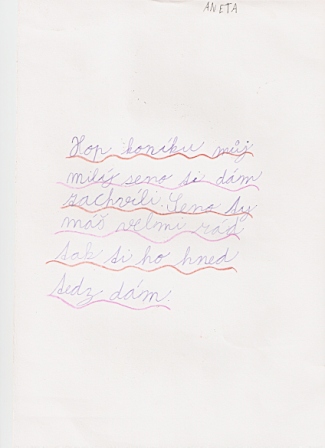 ANETA
Hop koníku můj
miláš seno si dám
zachvíli. Seno ty
máš velmi rád
tak si ho hned
tedz dám.